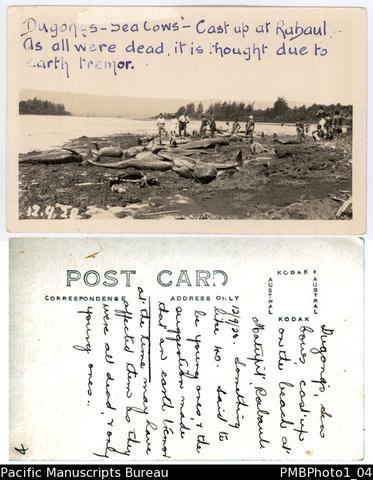 Dugongs - Sea Cows - Cast up at Rabaul -
As all were dead, it is thought due to
earth tremor.
12.9.28
POST CARD
CORRESPONDENCE
ADDRESS ONLY
KODAK
AUSTRAL
AUSTRAL
KODAK
Dugongs, sea
cows cast up
on the beach at
Matupit, Rabaul
12/9/28. Something
like 40. Said to
be young ones & the
suggestion made
that an earth tremor
at the time may have
affected them as they
were all dead, & only
young ones..
Pacific Manuscripts Bureau
PMBPhoto1_04